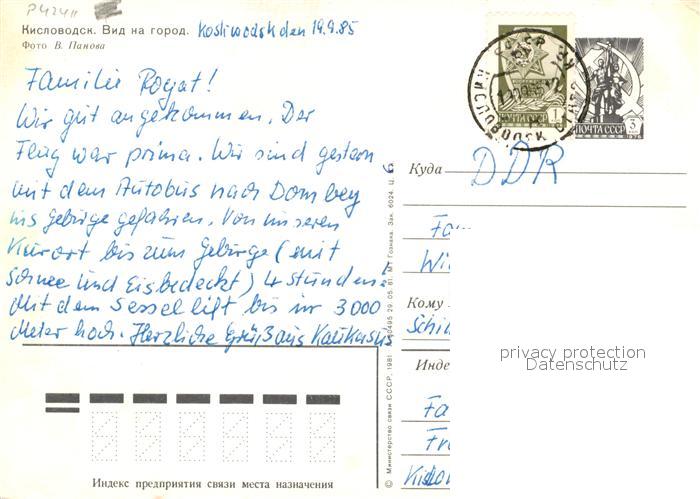 P424H
Кисловодск. Вид на город. Kosliwodsk den 19.9.85
Фото В. Панова
Familie Rogat!
Wir gut angekommen. Der
Flug war prima. Wir sind gestern
mit dem Autobus nach Dombey
ins Gebirge gefahren. Von unseren
Kurort bis zum Gebirge (mit
Schnee und Eis bedeckt) 4 Stunden.
Mit dem Sessellift bis in 3000
Meter hoch. Herzliche Grüße aus Kaukasus
Индекс предприятия связи места назначения
© Министерство связи СССР, 1981 з. 80495 29. 05. 81. МТ Гознака. Зак. 6024. Ц.
ПОЧТА СССР 1
ПОЧТА СССР 3
1976
КИСЛОВОДСК
Куда DDR
Fa
Wi
Кому
Schi
privacy protection
Datenschutz
Инде
Fa
Fr
Kislo